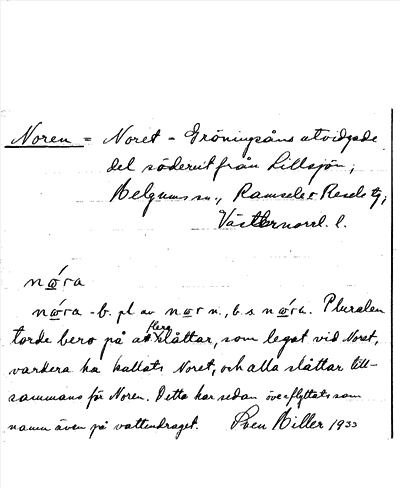 Noren = Noret = Gröningsåns utvidgade
del söderut från Lillsjön;
Helgums sn., Ramsele o Resele tg;
Västernorrl. l.
nωŕa
nωŕa - b. pl av nωr n., b. s nωŕa. Pluralen
torde bero på att flera slåttar, som legat vid Noret,
vardera ha kallats Noret, och alla slåttar till-
sammans för Noren. Detta har sedan överflyttats som
namn även på vattendraget. Sven Hiller 1933